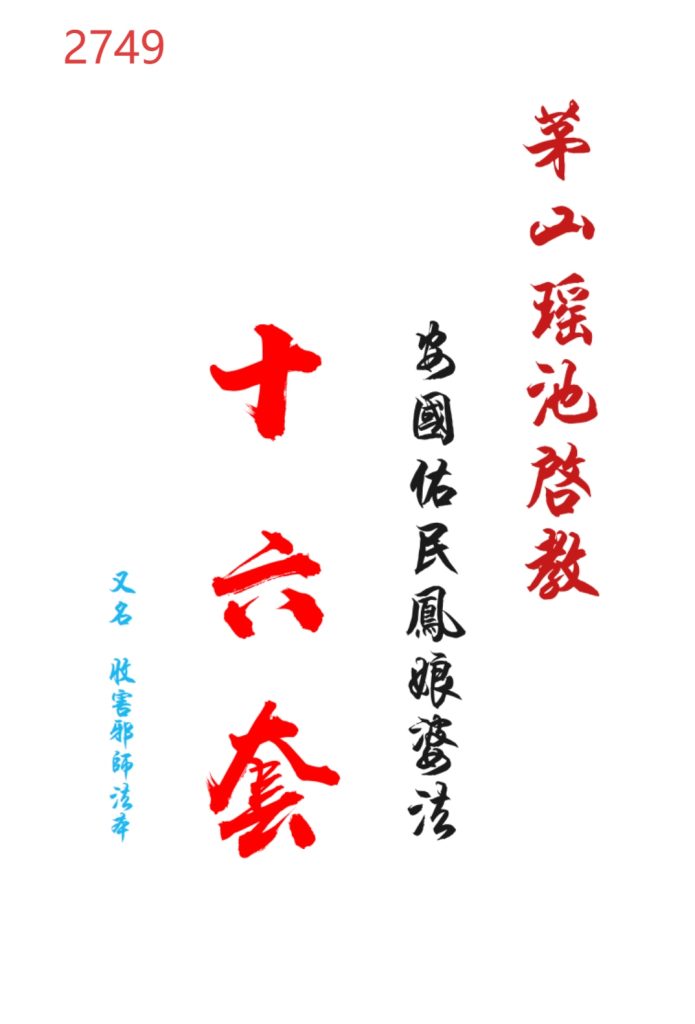 2749
茅山瑶池啓教
安國佑民鳳娘婆法
十六套
又名 收害邪師法本